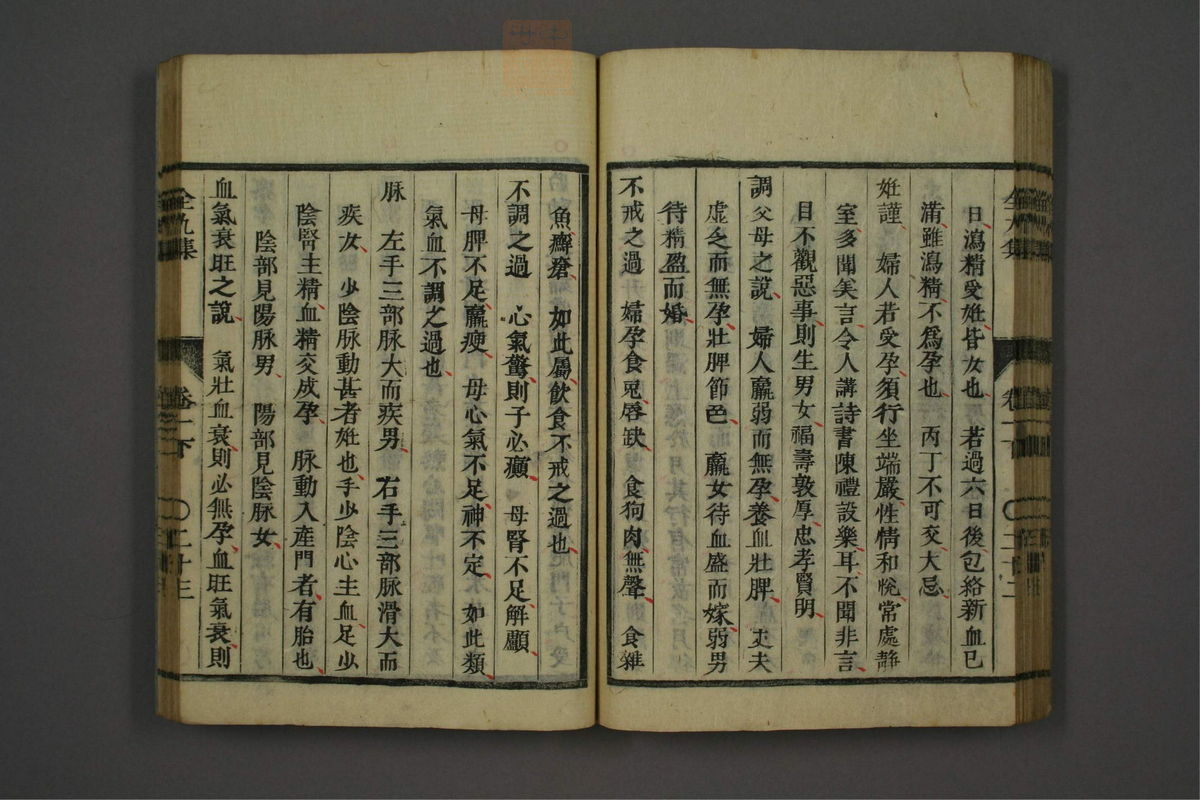 日瀉精受姙皆女也　若過六日後包絡新血已
滿雖瀉精不爲孕也　丙丁不可交大忌
姙謹　婦人若受孕須行坐端嚴性情和悅常處靜
室多聞美言令人講詩書陳禮設樂耳不聞非言
目不觀惡事則生男女福壽敦厚忠孝賢明
調父母之說　婦人羸弱而無孕養血壯脾　丈夫
虛乏而無孕壯脾節色　羸女待血盛而嫁弱男
待精盈而婚
不戒之過　婦孕食兎唇缺　食狗肉無聲　食雜
魚癬瘡如此屬飲食不戒之過也
不調之過　心氣驚則子必癲　母腎不足解顱
母脾不足羸瘦　母心氣不足神不定　如此類
氣血不調之過也
脉　左手三部脉大而疾男　右手三部脉滑大而
疾女　少陰脉動甚者姙也手少陰心主血足少
陰腎主精血精交成孕　脉動入産門者有胎也
陰部見陽脉男　陽部見陰脉女
血氣衰旺之說　氣壯血衰則必無孕血旺氣衰則
全九集
卷一下
二十二
全九集
卷一下
二十三